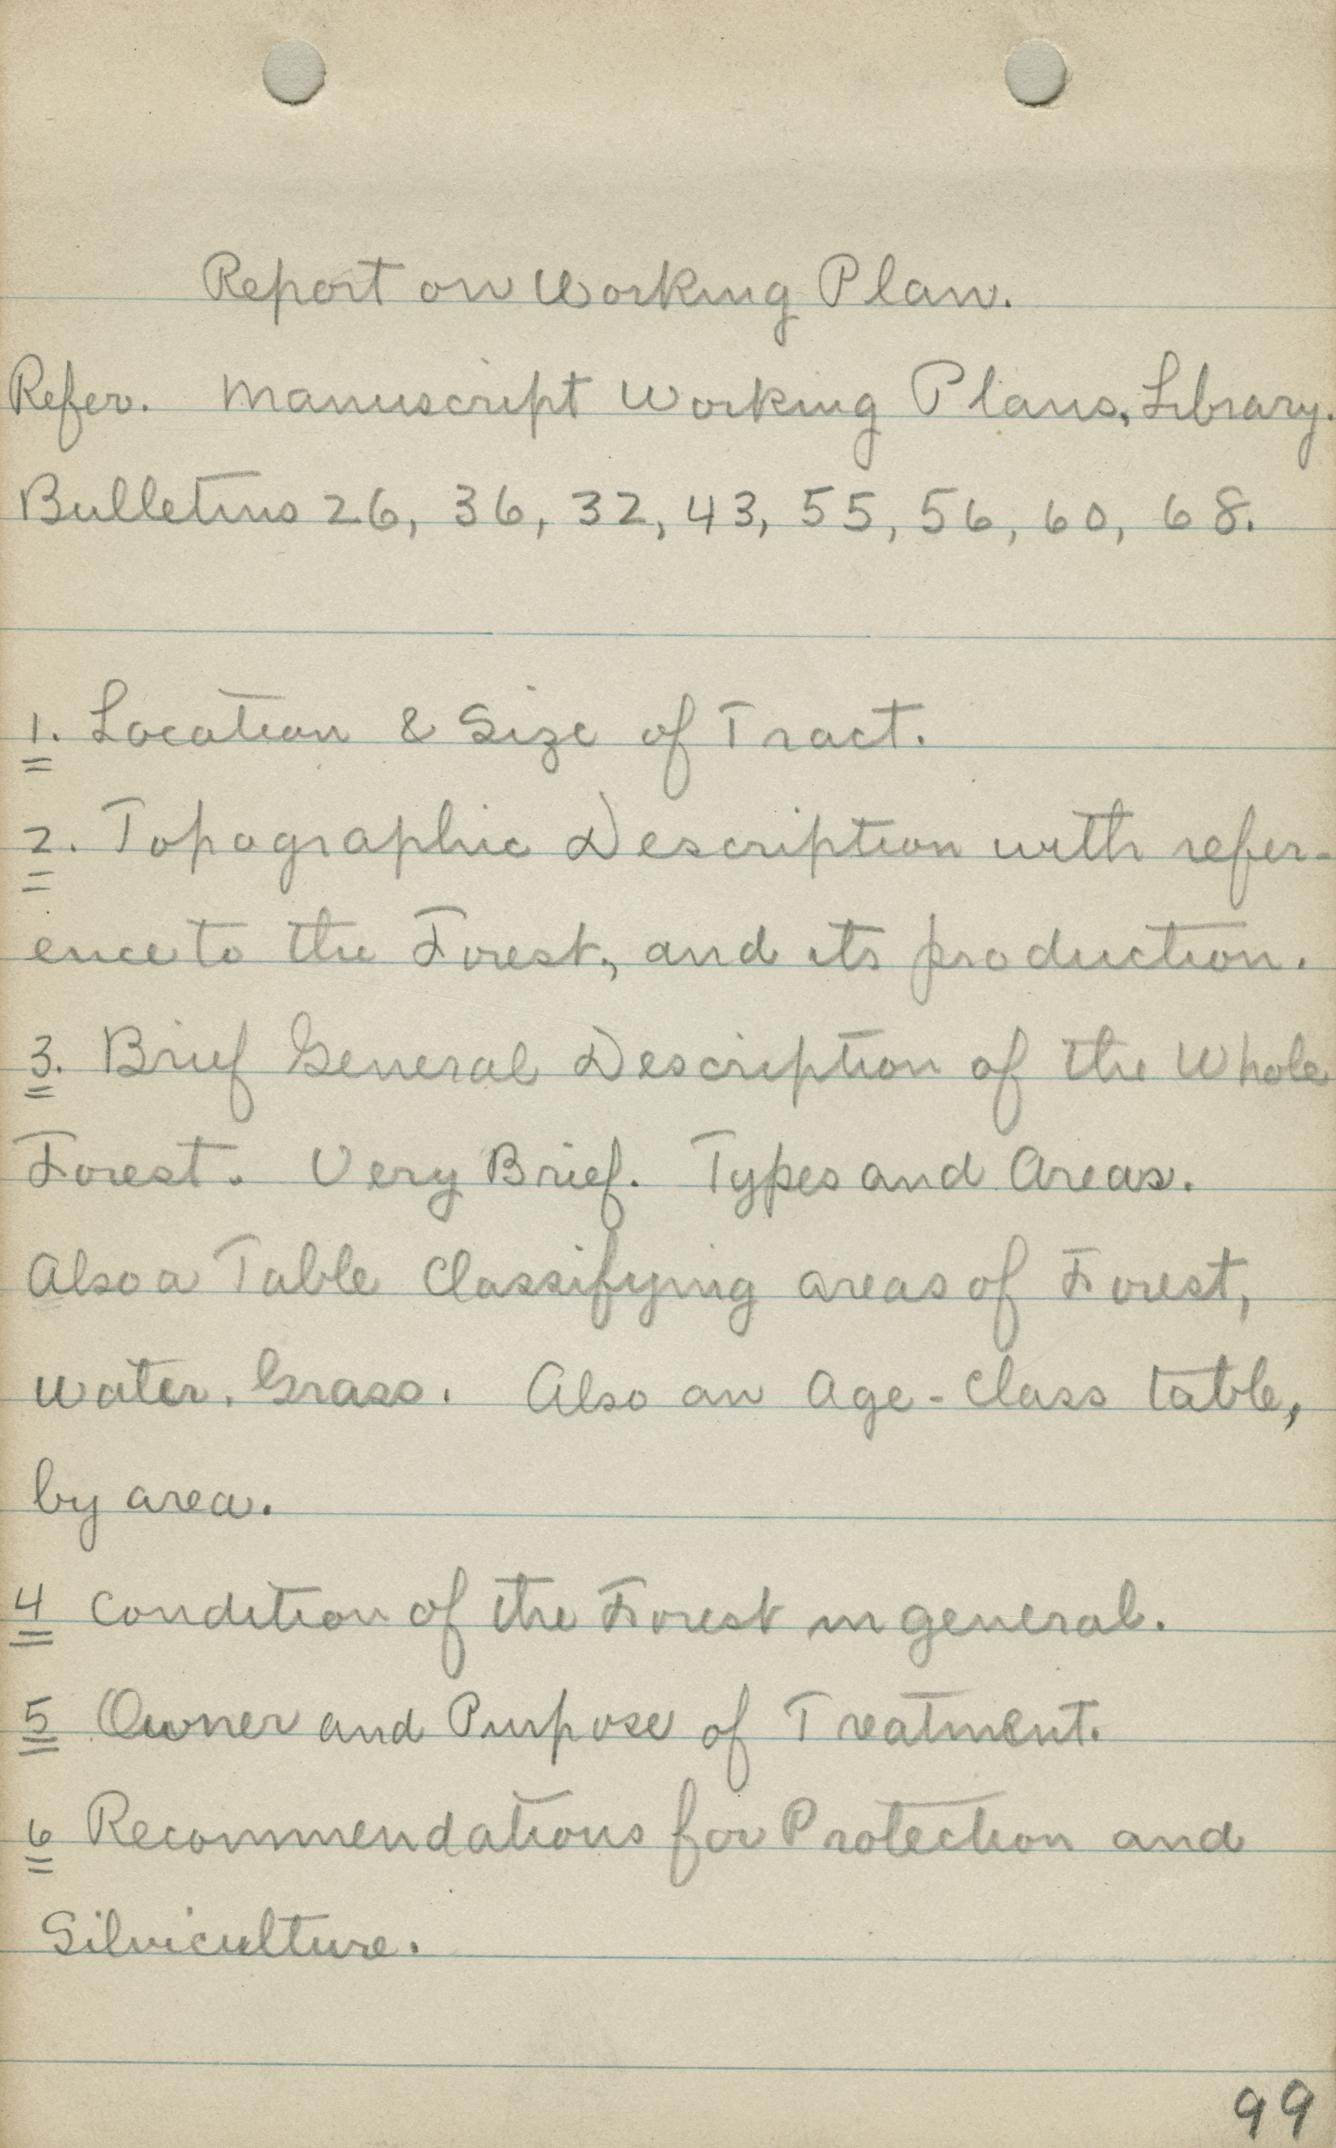 Report on Working Plan.
Refer. Manuscript Working Plans, Library.
Bulletins 26, 36, 32, 43, 55, 56, 60, 68.
1. Location & Size of Tract.
2. Topographic Description with refer-
ence to the Forest, and its production.
3. Brief General Description of the Whole
Forest. Very Brief. Types and Areas.
Also a Table Classifying areas of Forest,
Water, Grass. Also an Age-Class table,
by area.
4 Condition of the Forest in general.
5 Owner and Purpose of Treatment.
6 Recommendations for Protection and
Silviculture.
99